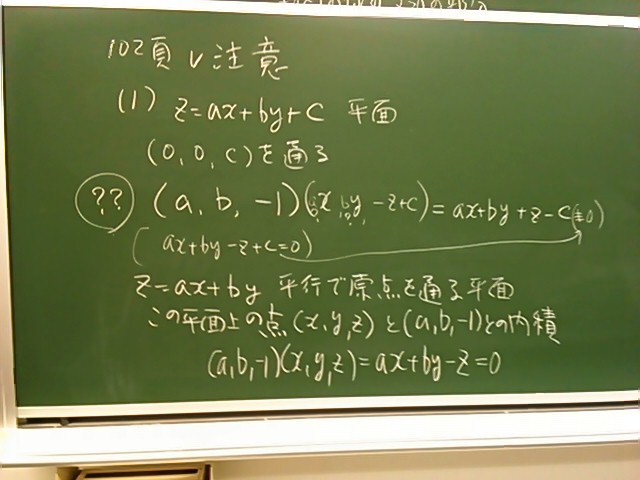 102頁 注意
(1) z=ax+by+c 平面
(0,0,c)を通る
?? (a,b,-1)(x, y, -z+c)=ax+by+z-c(≠0)
(ax+by-z+c=0)
z=ax+by 平行で原点を通る平面
この平面上の点(x,y,z)と(a,b,-1)との内積
(a,b,-1)(x,y,z)=ax+by-z=0